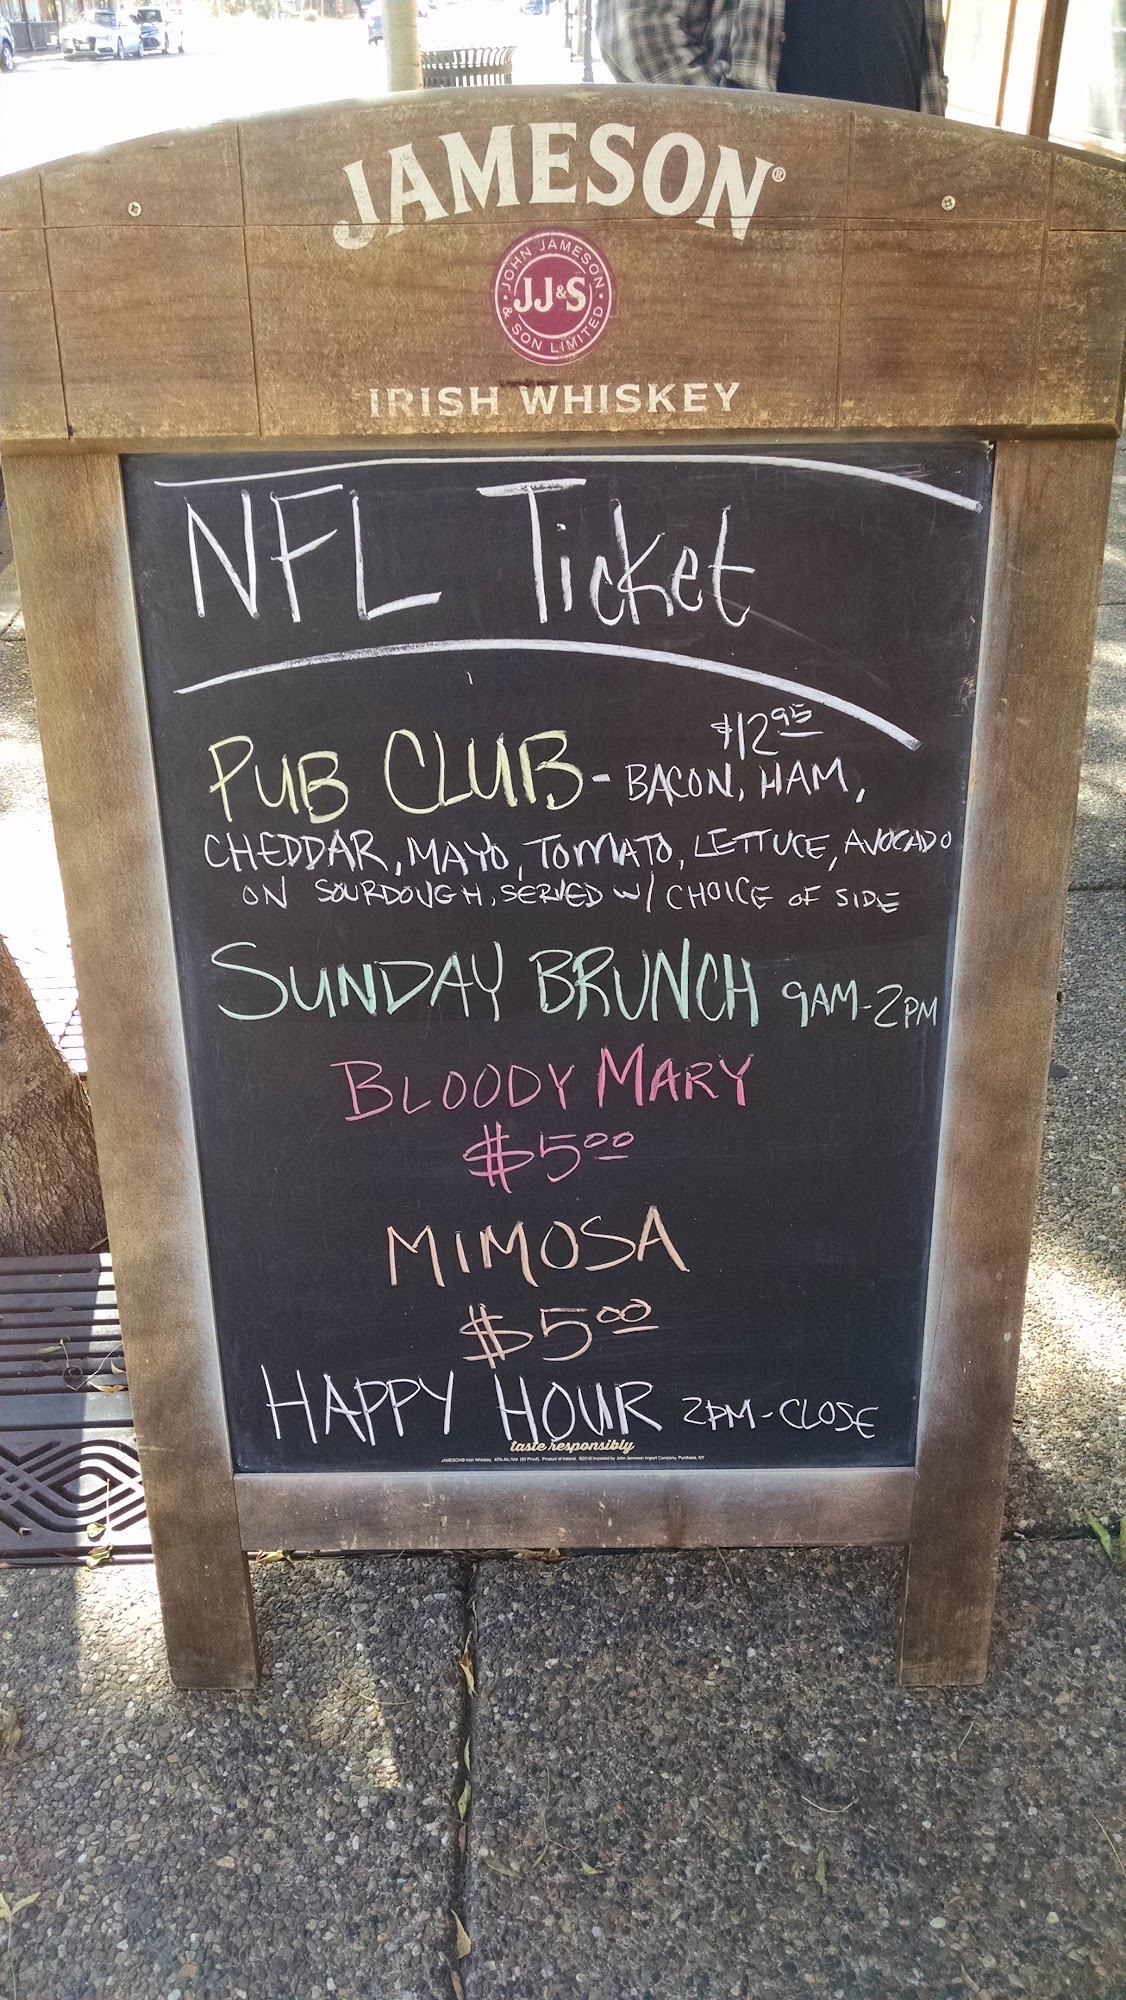 JAMESON®
JOHN JAMESON
JJ&S
& SON LIMITED
IRISH WHISKEY
NFL Ticket
$12.95
PUB CLUB - BACON, HAM,
CHEDDAR, MAYO, TOMATO, LETTUCE, AVOCADO
ON SOURDOUGH, SERVED W/ CHOICE OF SIDE
SUNDAY BRUNCH 9AM-2PM
BLOODY MARY
$5.00
MIMOSA
$5.00
HAPPY HOUR 2PM-CLOSE
taste responsibly
JAMESON® Irish Whiskey. 40% Alc./Vol. (80 Proof). Product of Ireland. ©2016 Imported by John Jameson Import Company, Purchase, NY